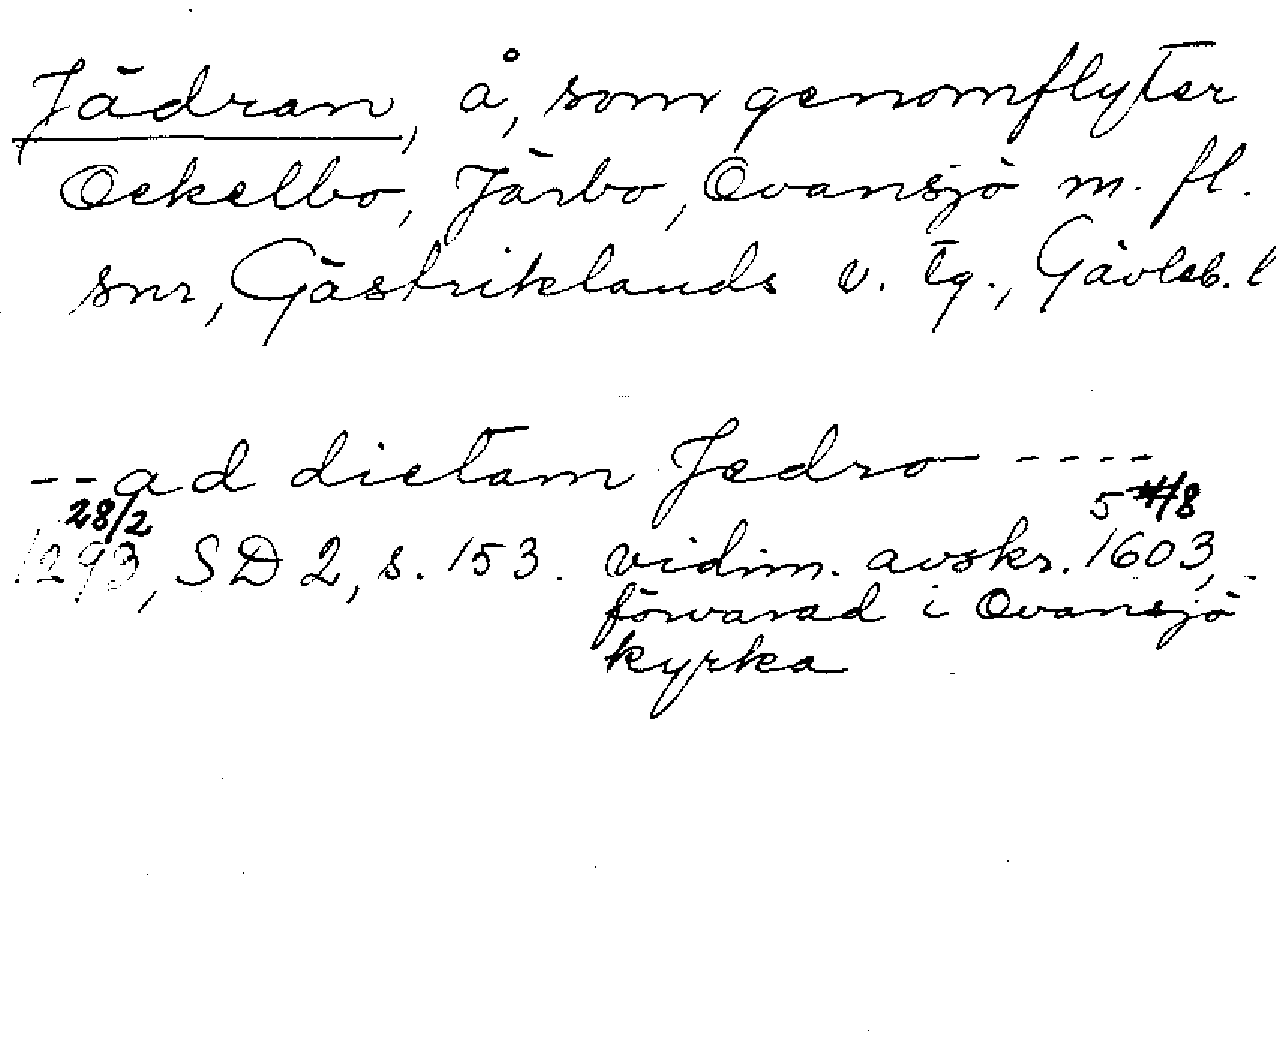 Jädran, å, som genomflyter
Ockelbo, Järbo, Ovansjö m. fl.
snr, Gästriklands v. tg., Gävleb. l
--ad dictam Jedro ----
28/2 5 /8
1293, SD 2, s. 153. vidim. avskr. 1603,
förvarad i Ovansjö
kyrka